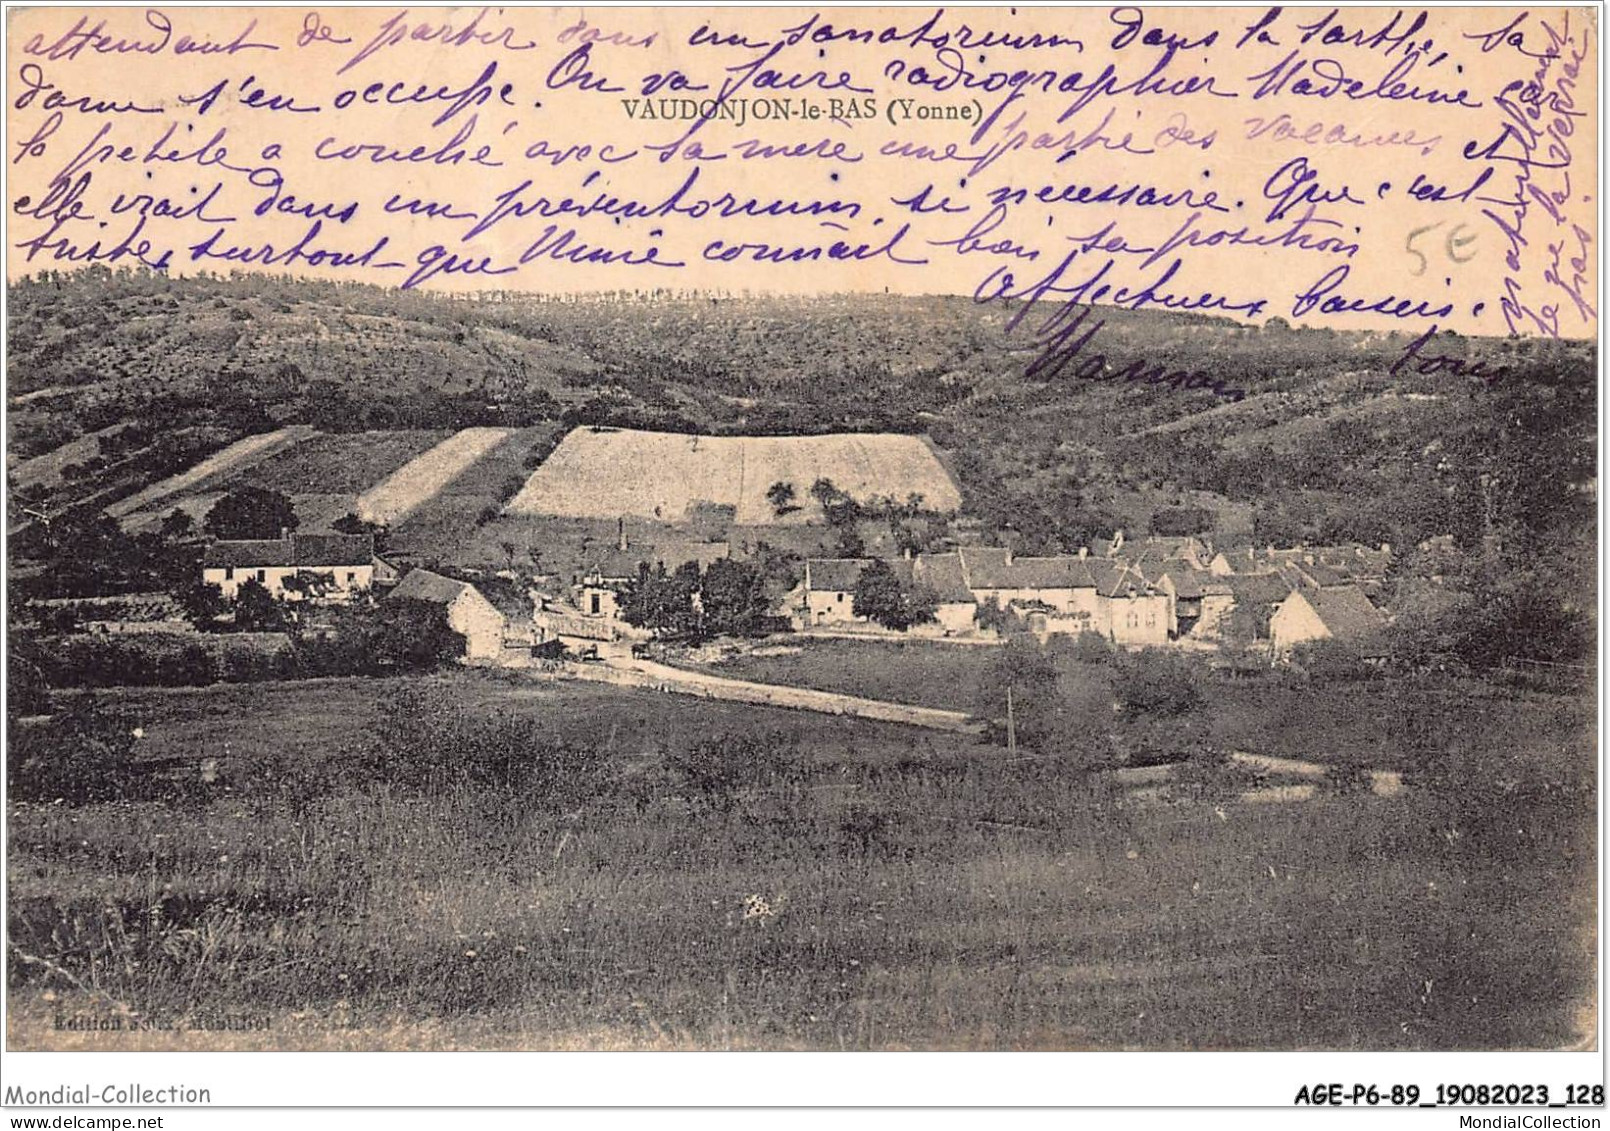 attendant de partir dans un sanatorium dans la Sarthe, sa
dame s'en occupe. On va faire radiographier Madeleine car
VAUDONJON-le-BAS (Yonne)
la petite a couché avec sa mère une partie des vacances et
elle irait dans un préventorium, si nécessaire. Que c'est
triste, surtout que Mimi connait bien sa position
Affectueux baisers à
tous
Maman
naturellement
je ne la verrai
pas.
5€
Edition Montillot
Mondial-Collection
AGE-P6-89_19082023_128
MondialCollection